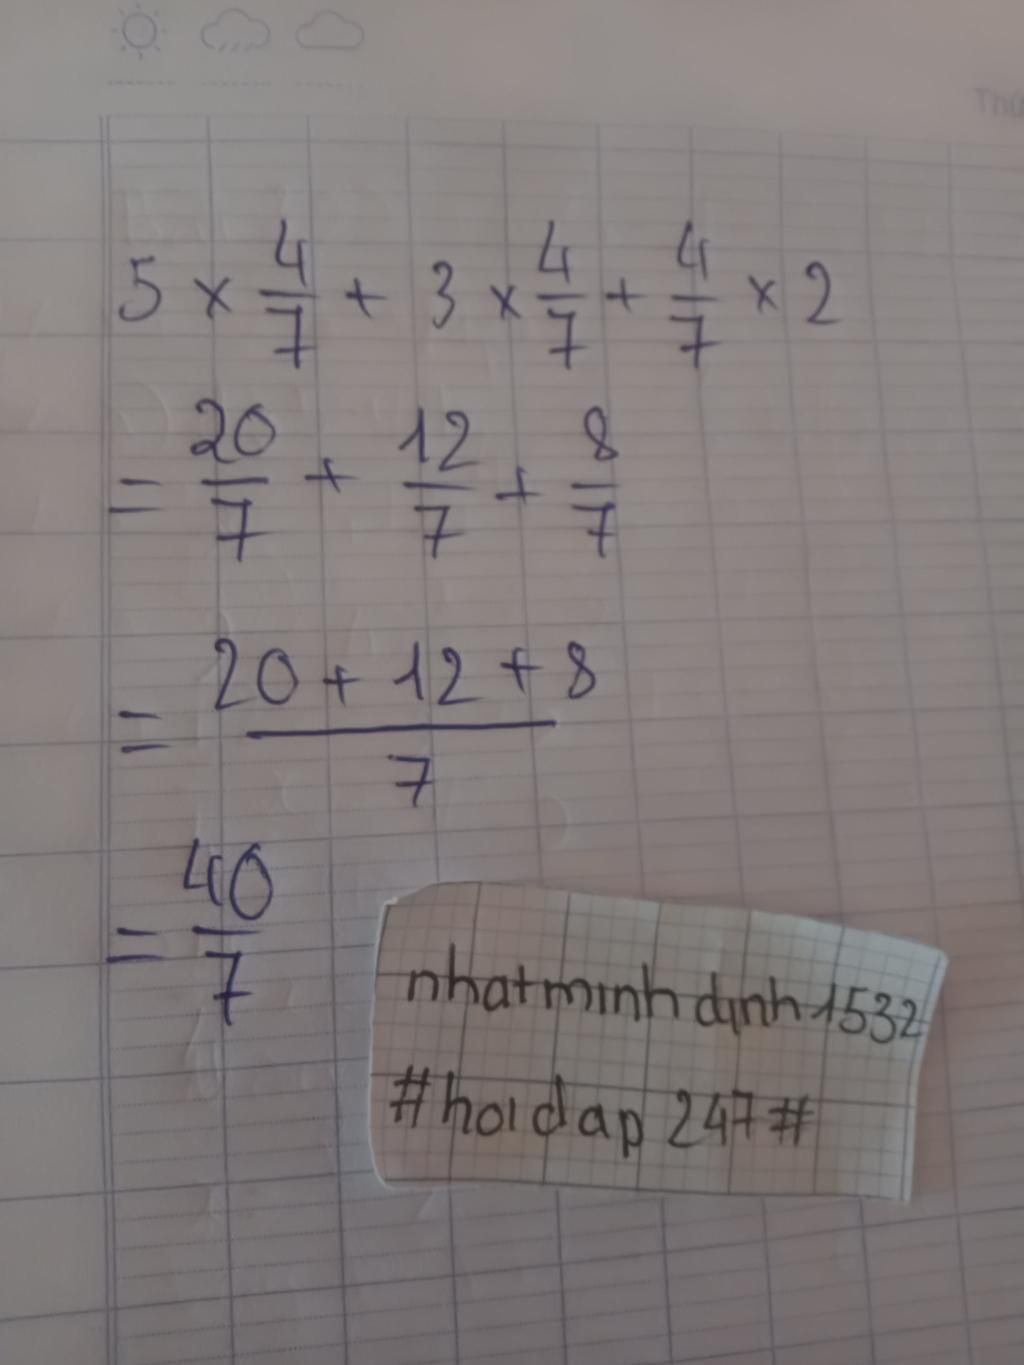 Thứ
5 × 4/7 + 3 × 4/7 + 4/7 × 2
= 20/7 + 12/7 + 8/7
= (20 + 12 + 8)/7
= 40/7
nhatminhdinh1532
#hoidap247#